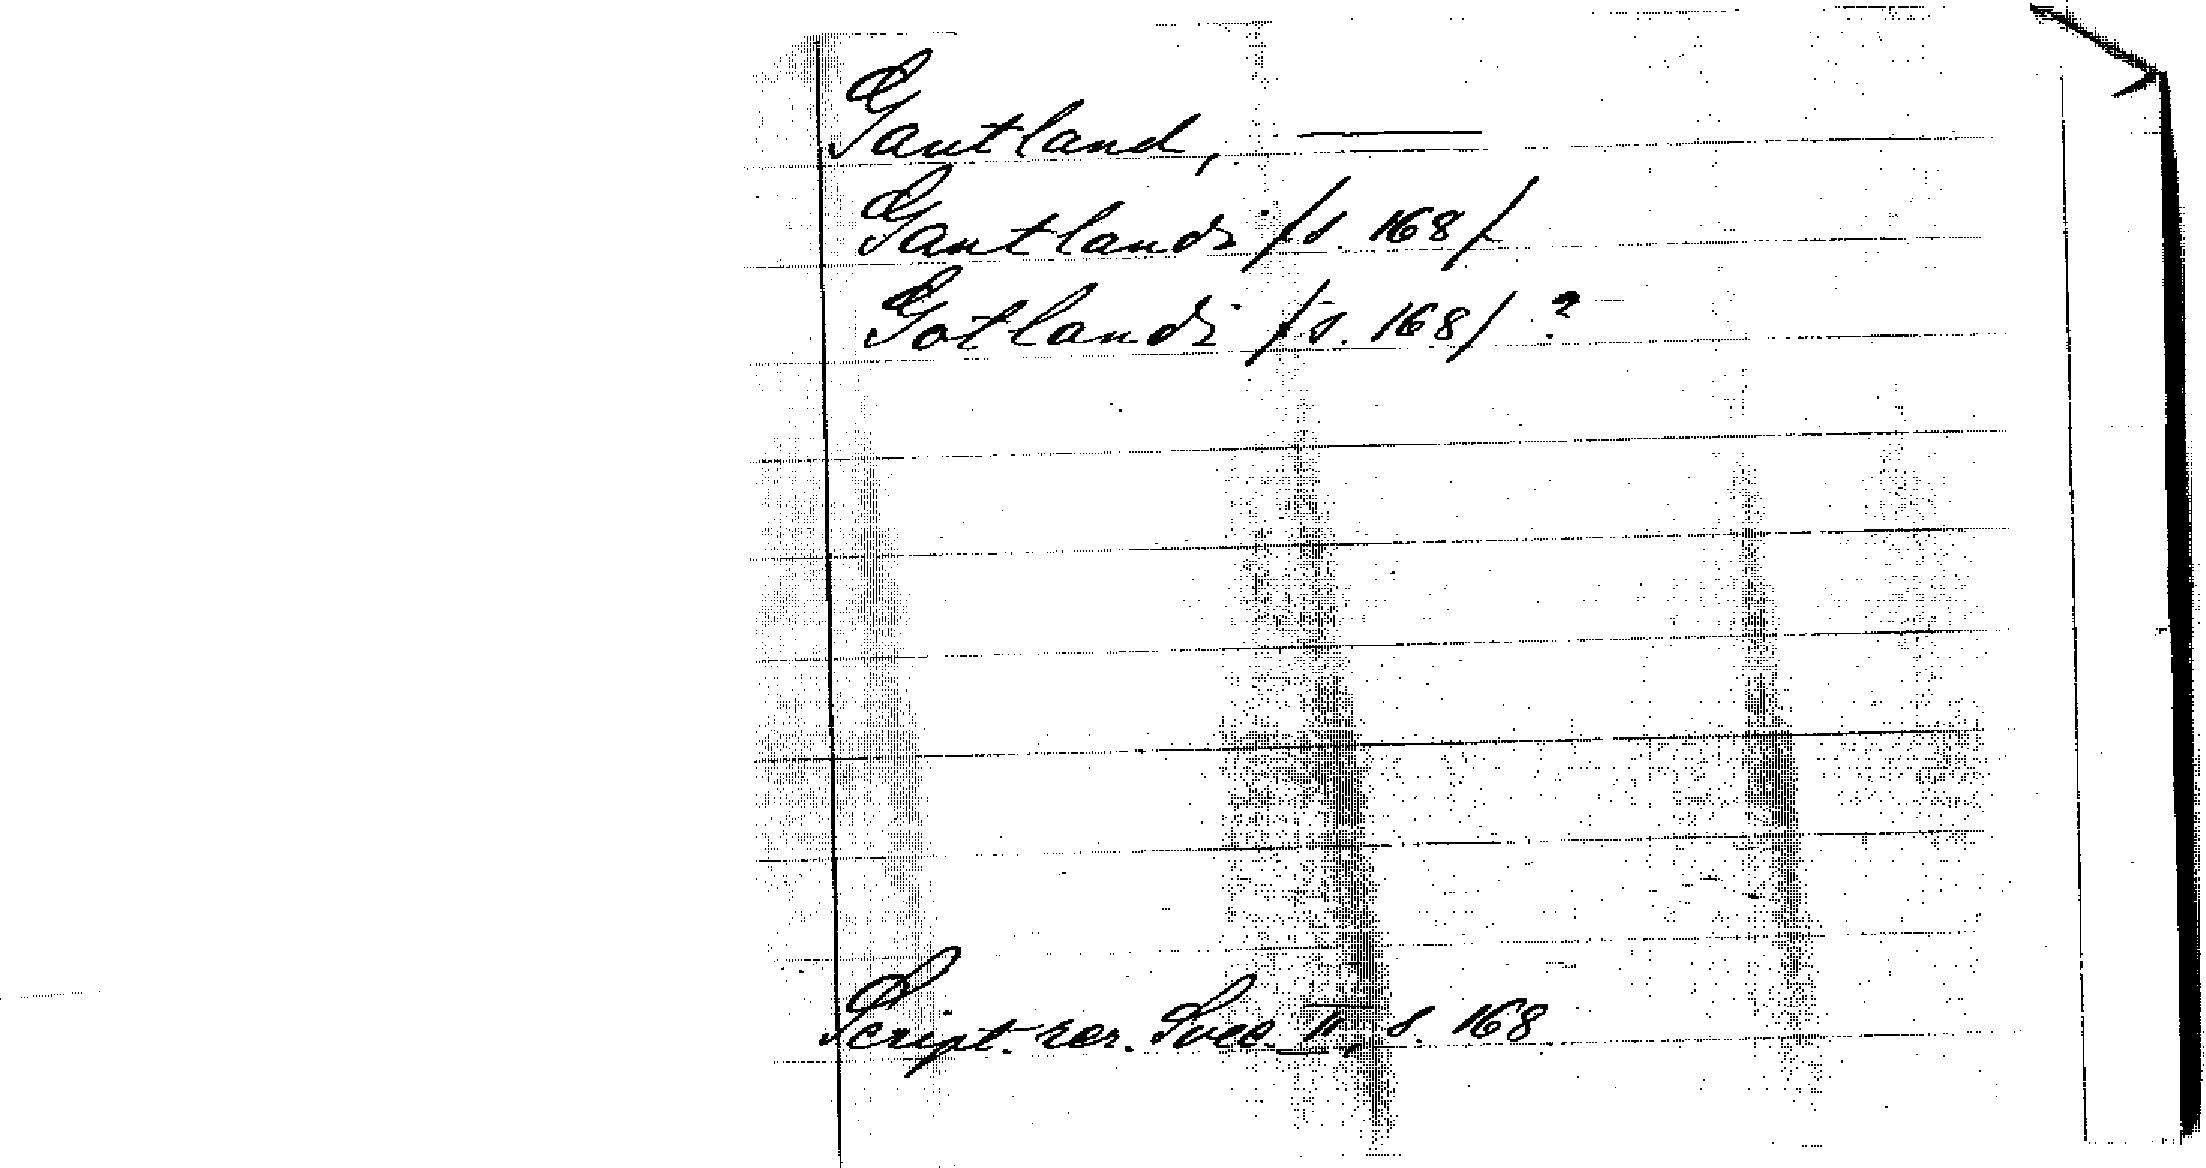 Gautland, ——
Gautlandi /s. 168/
Gotlandi /s. 168/ ?
Script. rer. Svec. II, s. 168